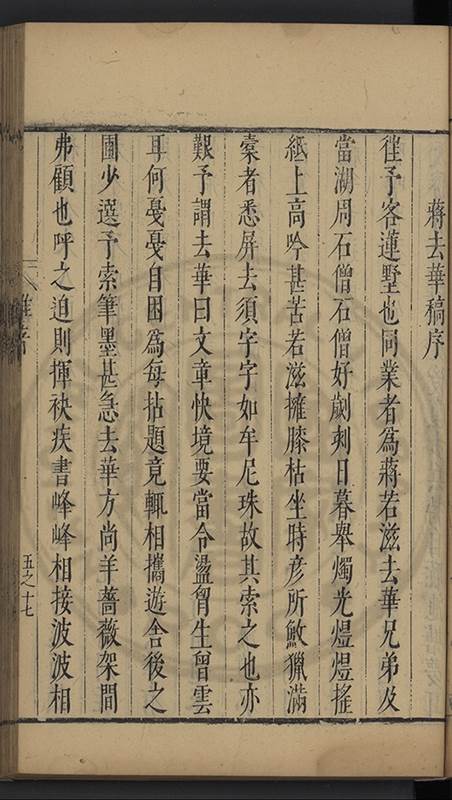 蔣去華稿序
徃予客蓮墅也同業者爲蔣若滋去華兄弟及
當湖周石僧石僧好劌刺日暮舉燭光煜煜搖
紙上高吟甚苦若滋擁膝枯坐時彥所斂獵滿
槖者悉屏去須字字如牟尼珠故其索之也亦
艱予謂去華曰文章快境要當令盪胷生曾雲
耳何戞戞自困爲每拈題竟輒相攜遊舎後之
圃少選予索筆墨甚急去華方尚羊薔薇架間
弗顧也呼之迫則揮袂疾書峰峰相接波波相
五之十七